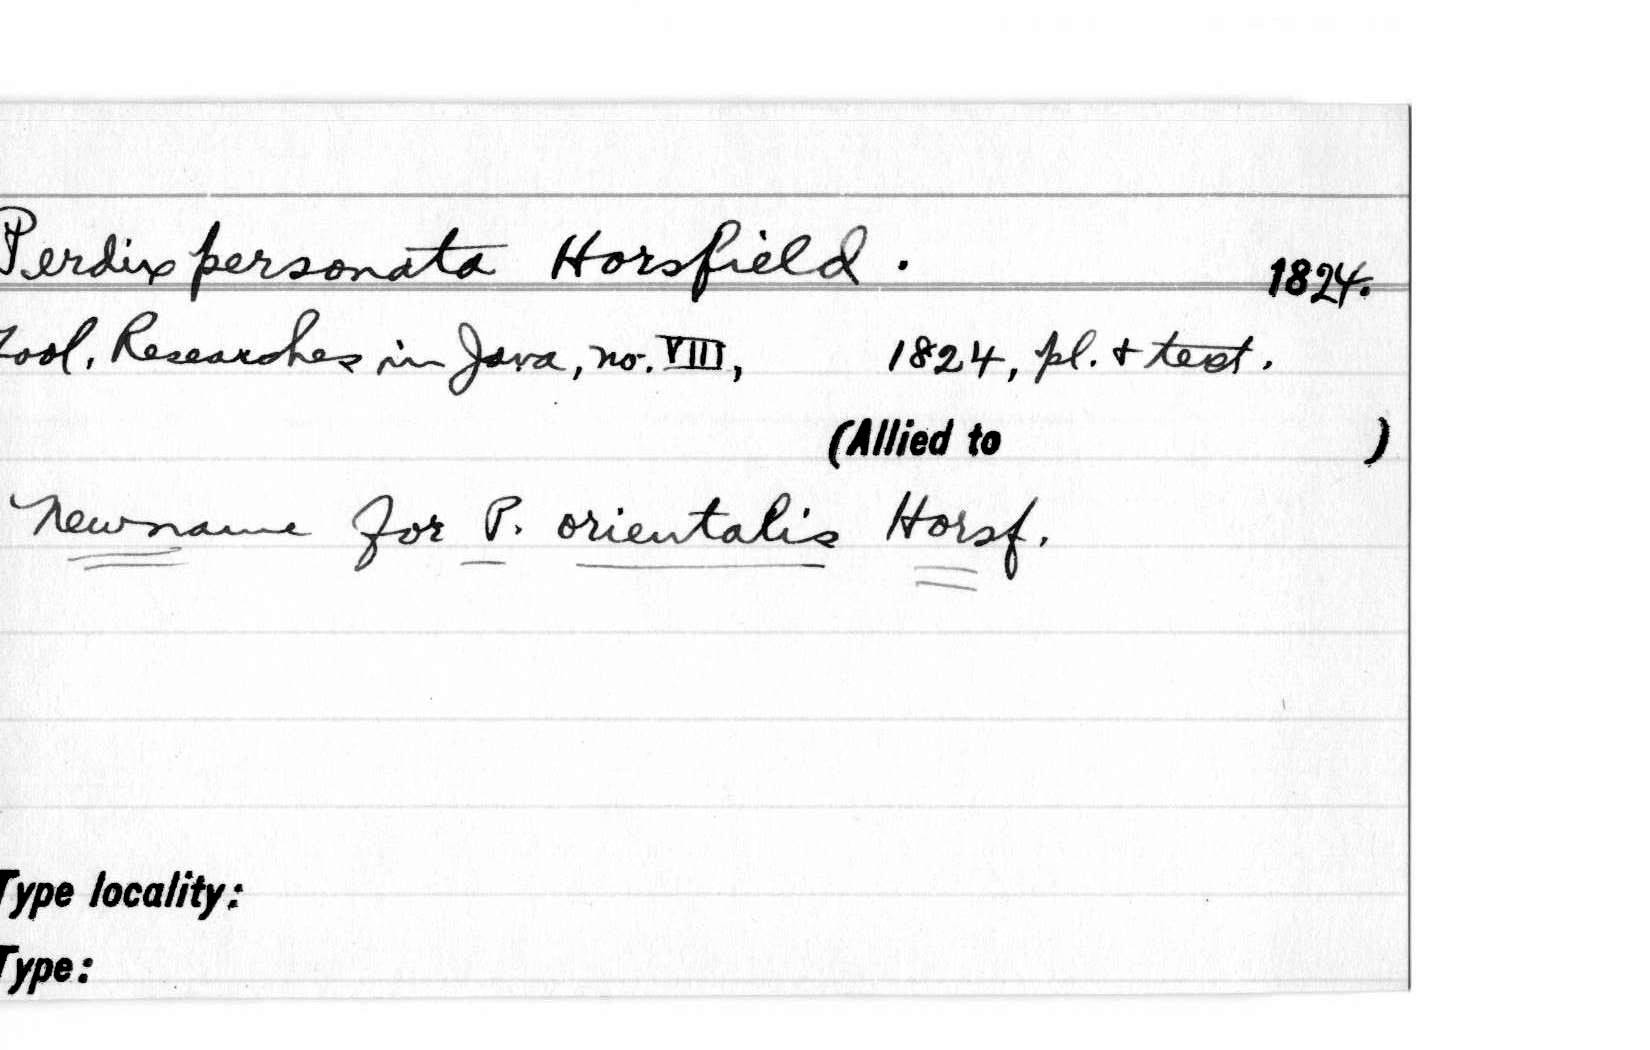 Perdix personata Horsfield. 1824.
Zool. Researches in Java, no. VIII, 1824, pl. & text.
(Allied to )
New name for P. orientalis Horsf.
Type locality:
Type: